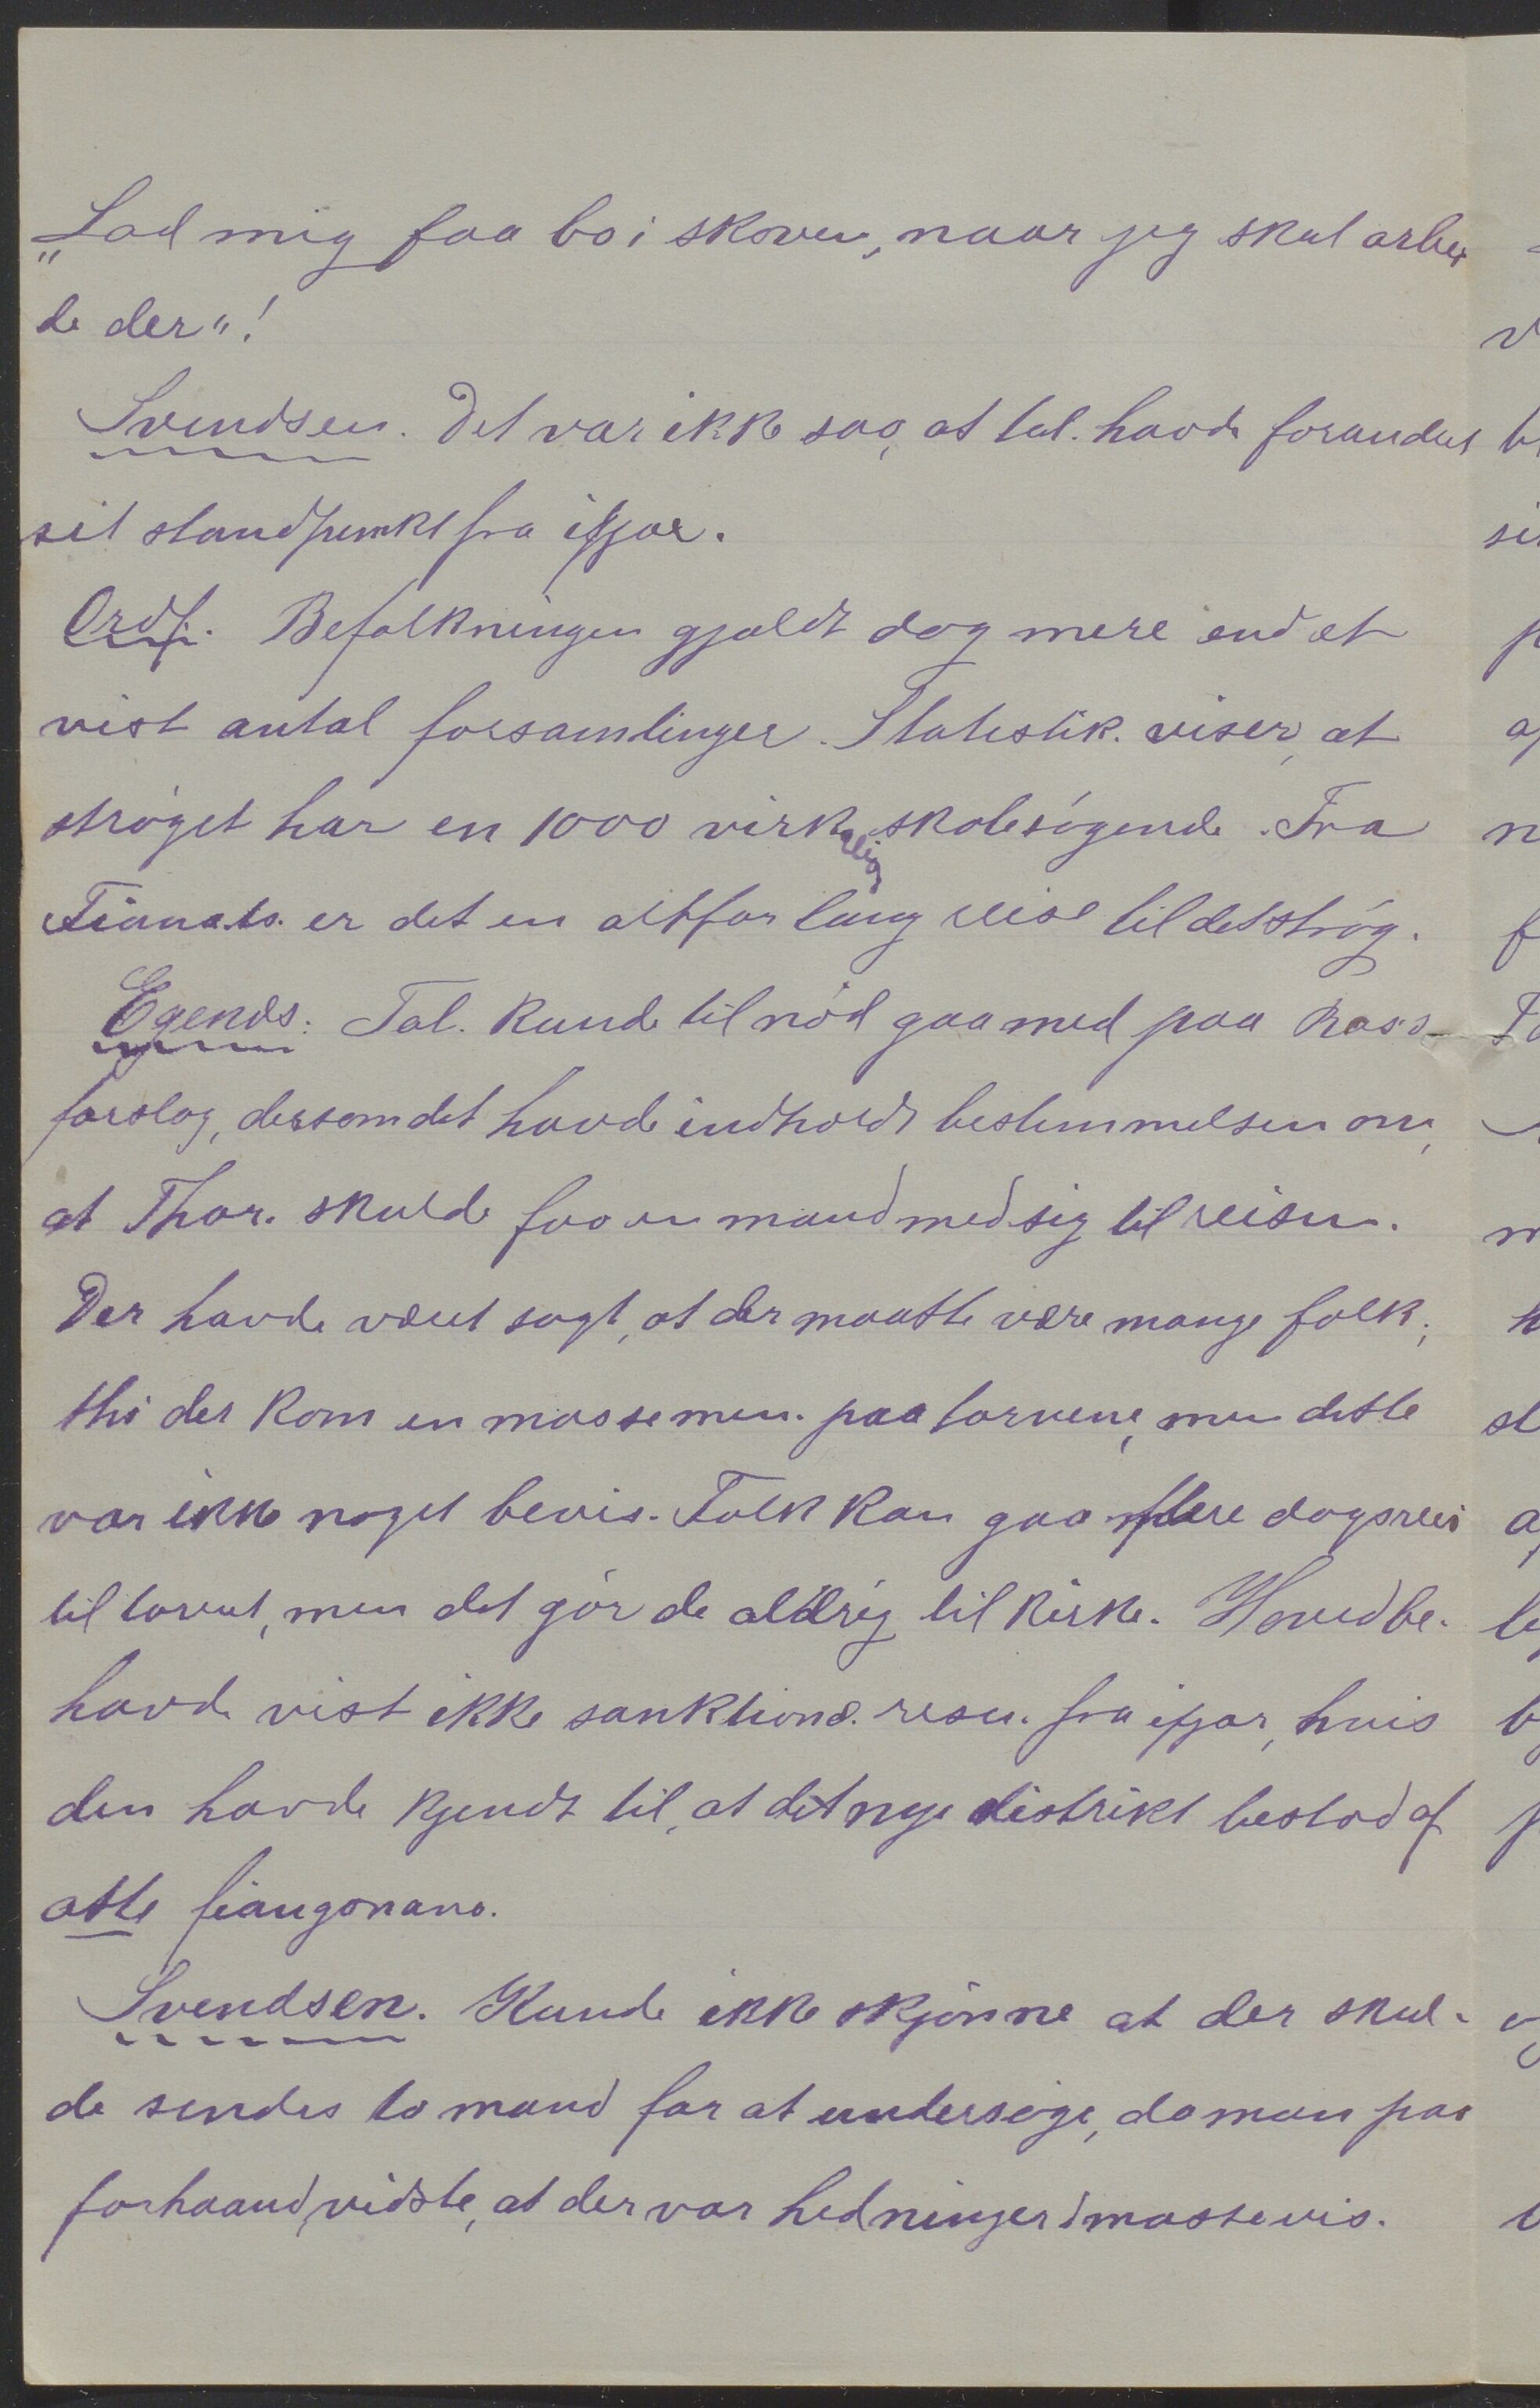 „Lad mig faa bo i skoven, naar jeg skal arbei
de der“!
Svendsen. Det var ikke saa, at tal. havde forandret
sit standpunkt fra ifjor.
Ordf. Befolkningen gjaldt dog mere end et
vist antal forsamlinger. Statestik. viser, at
strøget har en 1000 virkelig skolesøgende. Fra
Fiana.ts. er det en altfor lang reise til det strøg.
Egends: Tal. kunde til nød gaa med paa Ros's
forslag, dersom det havde indholdt bestemmelsen om,
at Thor. skulde faa en mand med sig til reisen.
Der havde været sagt, at der maatte være mange folk;
thi der kom en masse men. paa torvene, men dette
var ikke noget bevis. Folk kan gaa flere dagsrei
til torvet, men det gør de aldrig til kirke. Hovedbe.
havde vist ikke sanktiond. resu. fra ifjor, hvis
den havde kjendt til, at det nye distrikt bestod af
otte fiangonana.
Svendsen. Kunde ikke skjønne at der skul-
de sendes to mand for at undersøge, da man paa
forhaand vidste, at der var hedninger i massevis.